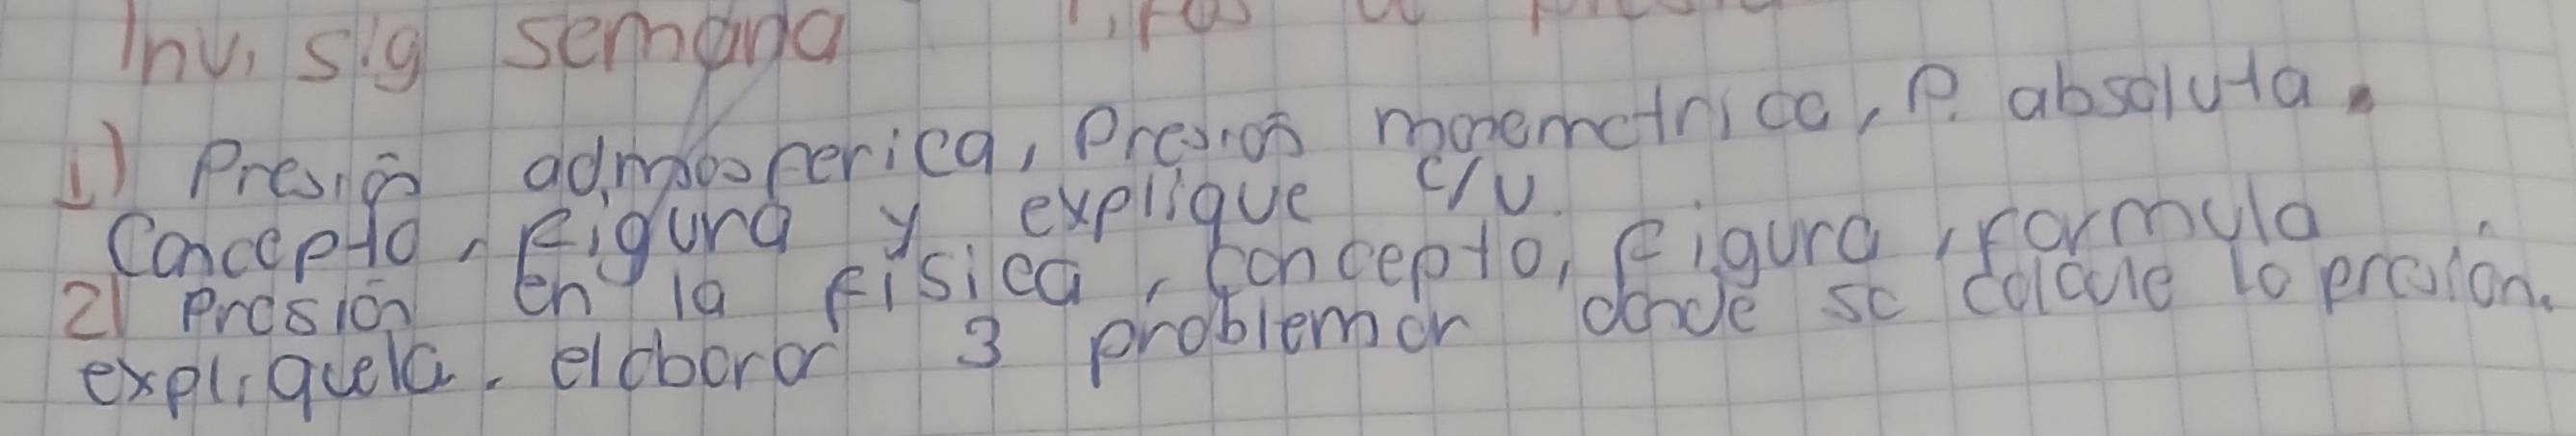 Inv, sig semana
1) Presión admoosferica, Presion manemetrica, P. absoluta.
Concepto, Figura y explique c/u.
2) Presión en la Fisica, concepto, Figura, formula
expliquela. elaborar 3 problemar donde se calcule la presión.